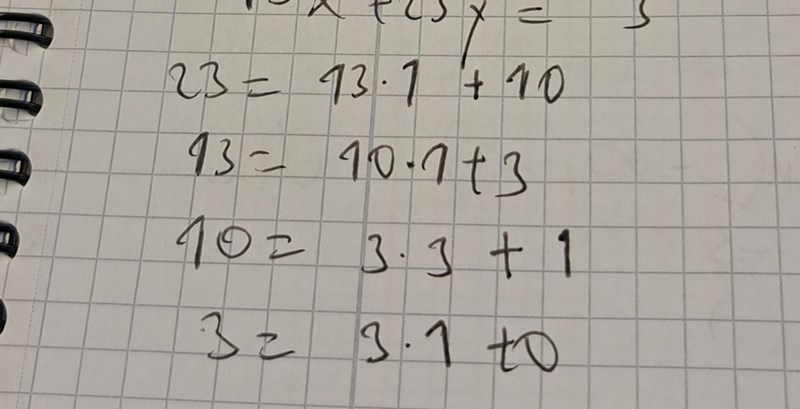 x + 23y = 3
23 = 13·1 + 10
13 = 10·1 + 3
10 = 3·3 + 1
3 = 3·1 + 0